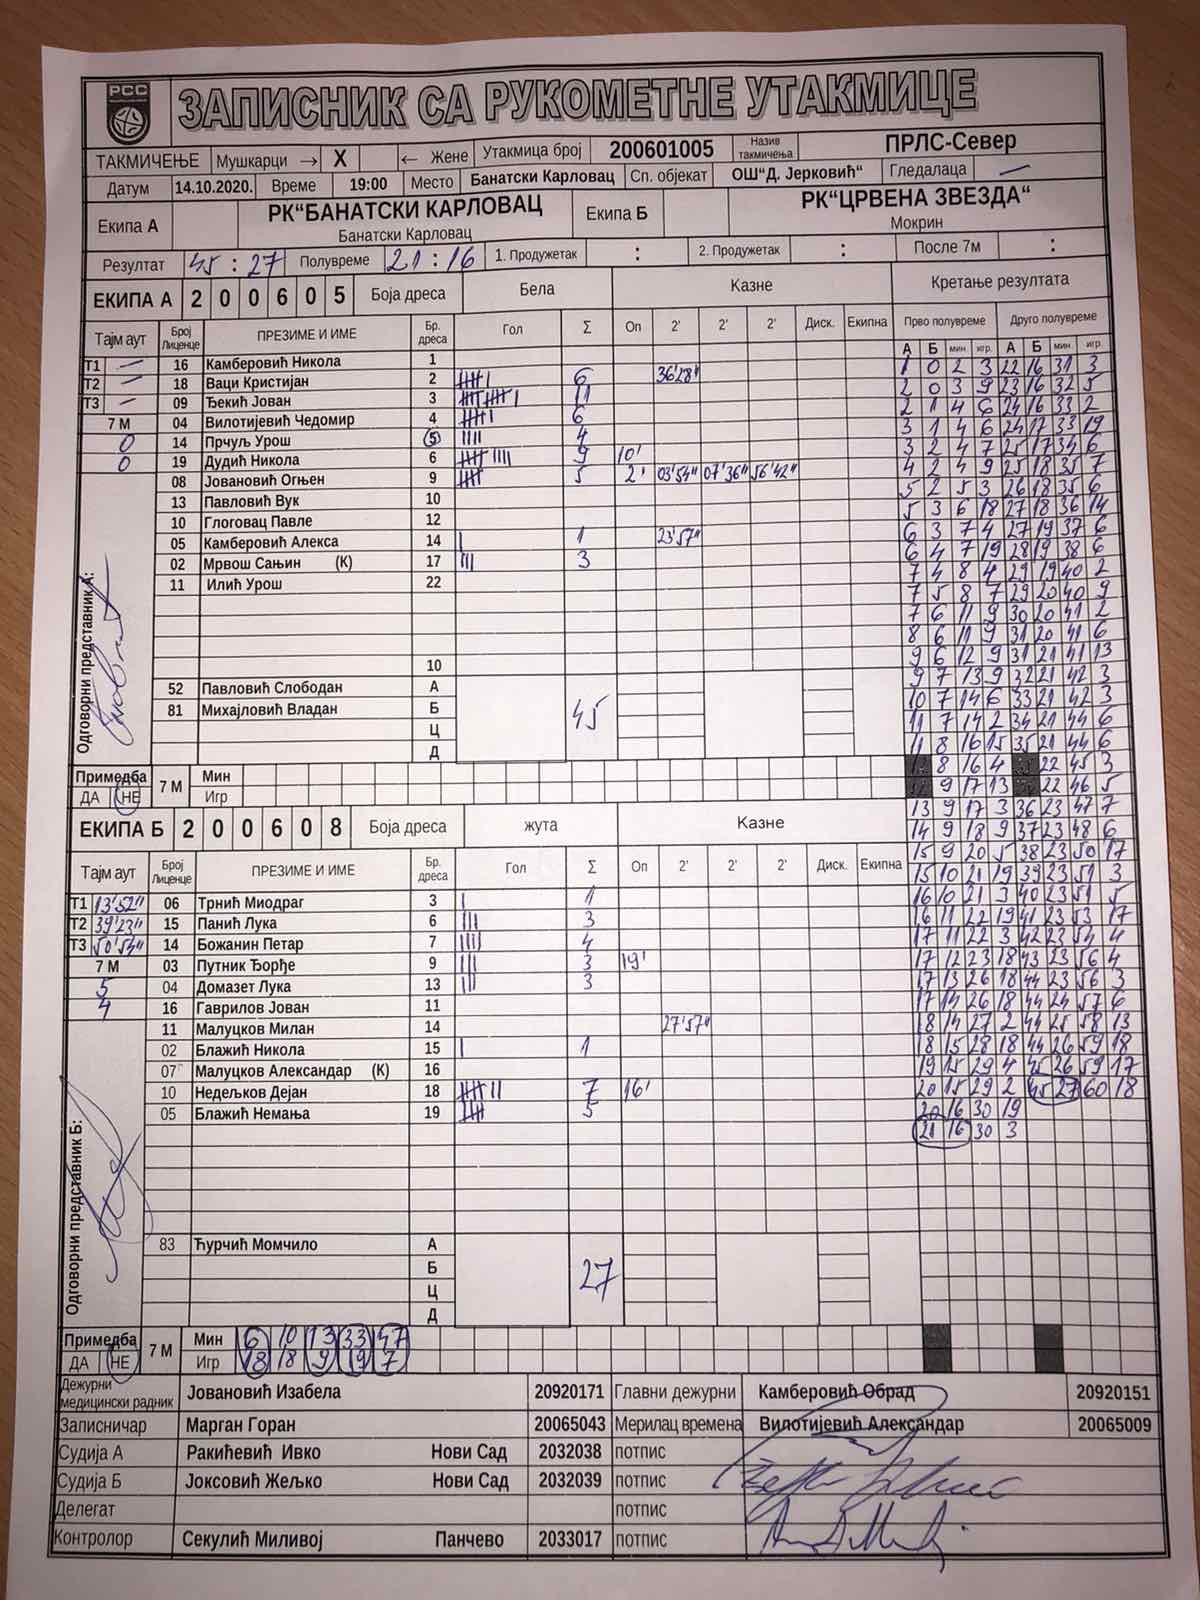 РСС
ЗАПИСНИК СА РУКОМЕТНЕ УТАКМИЦЕ
ТАКМИЧЕЊЕ Мушкарци → X ← Жене Утакмица број 200601005 Назив такмичења ПРЛС-Север
Датум 14.10.2020. Време 19:00 Место Банатски Карловац Сп. објекат ОШ"Д. Јерковић" Гледалаца —
Екипа А РК"БАНАТСКИ КАРЛОВАЦ Екипа Б РК"ЦРВЕНА ЗВЕЗДА"
Банатски Карловац Мокрин
Резултат 45 : 27 Полувреме 21 : 16 1. Продужетак : 2. Продужетак : После 7м :
ЕКИПА А 2 0 0 6 0 5 Боја дреса Бела Казне Кретање резултата
Тајм аут Број Лиценце ПРЕЗИМЕ И ИМЕ Бр. дреса Гол Σ Оп 2' 2' 2' Диск. Екипна Прво полувреме Друго полувреме
А Б мин. игр. А Б мин. игр.
Т1 — 16 Камберовић Никола 1
1 0 2 3 22 16 31 3
Т2 — 18 Ваци Кристијан 2 6 36'28"
2 0 3 9 23 16 32 5
Т3 — 09 Ђекић Јован 3 11
2 1 4 6 24 16 33 2
7 М 04 Вилотијевић Чедомир 4 6
3 1 4 6 24 17 33 19
0 14 Прчуљ Урош 5 4
3 2 4 7 25 17 34 6
0 19 Дудић Никола 6 9 10'
4 2 4 9 25 18 35 7
08 Јовановић Огњен 9 5 2' 03'54" 07'36" 56'42"
5 2 5 3 26 18 35 6
13 Павловић Вук 10
5 3 6 18 27 18 36 14
10 Глоговац Павле 12
6 3 7 4 27 19 37 6
05 Камберовић Алекса 14 1 23'57"
6 4 7 19 28 19 38 6
02 Мрвош Сањин (К) 17 3
7 4 8 4 29 19 40 2
11 Илић Урош 22
7 5 8 7 29 20 40 9
7 6 11 9 30 20 41 2
8 6 11 9 31 20 41 6
9 6 12 9 31 21 41 13
10
9 7 13 9 32 21 42 3
52 Павловић Слободан А
10 7 14 6 33 21 42 3
81 Михајловић Владан Б 45
11 7 14 2 34 21 44 6
Ц
11 8 16 15 35 21 44 6
Д
8 16 4 22 45 3
Одговорни представник А:
Примедба 7 М Мин
9 17 13 22 46 5
ДА НЕ Игр
13 9 17 3 36 23 47 7
ЕКИПА Б 2 0 0 6 0 8 Боја дреса жута Казне
14 9 18 9 37 23 48 6
15 9 20 5 38 23 50 17
Тајм аут Број Лиценце ПРЕЗИМЕ И ИМЕ Бр. дреса Гол Σ Оп 2' 2' 2' Диск. Екипна
15 10 21 19 39 23 51 3
Т1 13'52" 06 Трнић Миодраг 3 1
16 10 21 3 40 23 51 5
Т2 39'23" 15 Панић Лука 6 3
16 11 22 19 41 23 53 17
Т3 50'54" 14 Божанин Петар 7 4
17 11 22 3 42 23 54 4
7 М 03 Путник Ђорђе 9 3 19'
17 12 23 18 43 23 56 4
5 04 Домазет Лука 13 3
17 13 26 18 44 23 56 3
4 16 Гаврилов Јован 11
17 14 26 18 44 24 57 6
11 Малуцков Милан 14 27'57"
18 14 27 2 44 25 58 13
02 Блажић Никола 15 1
18 15 28 18 44 26 59 18
07 Малуцков Александар (К) 16
19 15 29 4 45 26 59 17
10 Недељков Дејан 18 7 16'
20 15 29 2 45 27 60 18
05 Блажић Немања 19 5
20 16 30 19
21 16 30 3
83 Ћурчић Момчило А
Б 27
Ц
Д
Одговорни представник Б:
Примедба 7 М Мин 6 10 13 33 47
ДА НЕ Игр 18 18 9 19 7
Дежурни медицински радник Јовановић Изабела 20920171 Главни дежурни Камберовић Обрад 20920151
Записничар Марган Горан 20065043 Мерилац времена Вилотијевић Александар 20065009
Судија А Ракићевић Ивко Нови Сад 2032038 потпис
Судија Б Јоксовић Жељко Нови Сад 2032039 потпис
Делегат потпис
Контролор Секулић Миливој Панчево 2033017 потпис